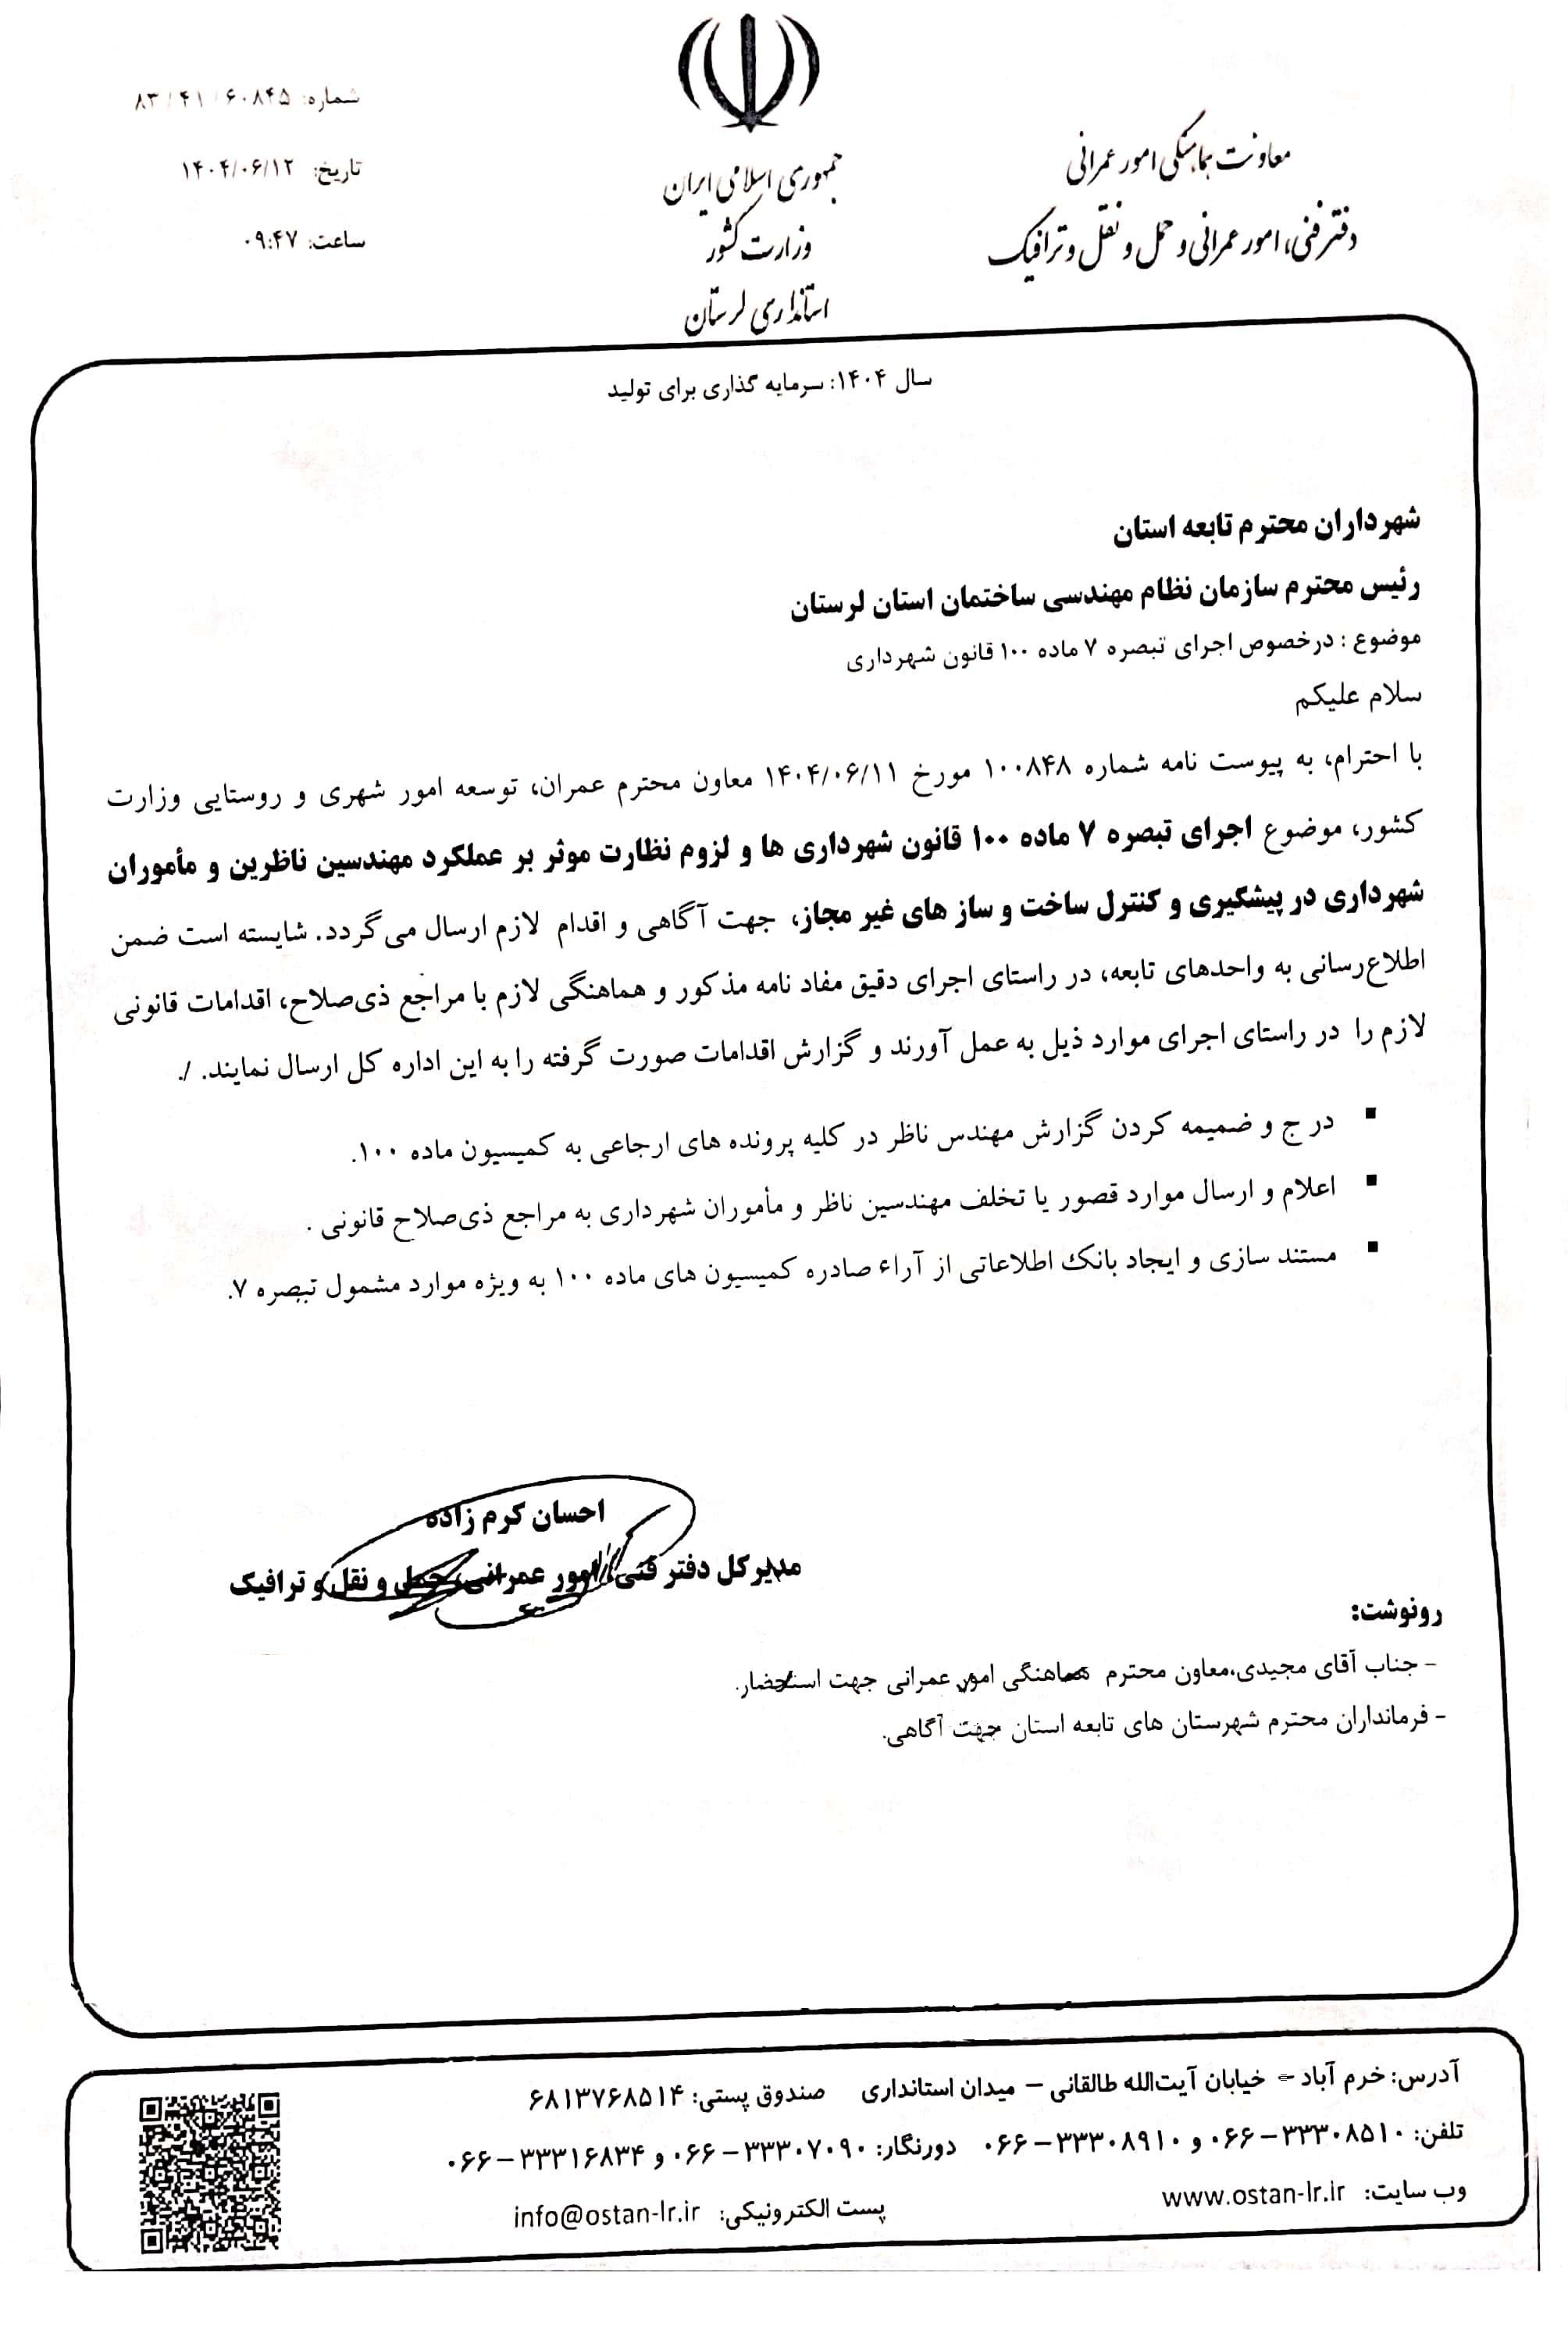 شماره: ۸۳/۴۱/۶۰۸۴۵
تاریخ: ۱۴۰۴/۰۶/۱۲
ساعت: ۰۹:۴۷
جمهوری اسلامی ایران
وزارت کشور
استانداری لرستان
معاونت هماهنگی امور عمرانی
دفتر فنی، امور عمرانی و حمل و نقل و ترافیک
سال ۱۴۰۴: سرمایه گذاری برای تولید
شهرداران محترم تابعه استان
رئیس محترم سازمان نظام مهندسی ساختمان استان لرستان
موضوع : درخصوص اجرای تبصره ۷ ماده ۱۰۰ قانون شهرداری
سلام علیکم
با احترام، به پیوست نامه شماره ۱۰۰۸۴۸ مورخ ۱۴۰۴/۰۶/۱۱ معاون محترم عمران، توسعه امور شهری و روستایی وزارت
کشور، موضوع اجرای تبصره ۷ ماده ۱۰۰ قانون شهرداری ها و لزوم نظارت موثر بر عملکرد مهندسین ناظرین و مأموران
شهرداری در پیشگیری و کنترل ساخت و ساز های غیر مجاز، جهت آگاهی و اقدام لازم ارسال می گردد. شایسته است ضمن
اطلاع‌رسانی به واحدهای تابعه، در راستای اجرای دقیق مفاد نامه مذکور و هماهنگی لازم با مراجع ذی‌صلاح، اقدامات قانونی
لازم را در راستای اجرای موارد ذیل به عمل آورند و گزارش اقدامات صورت گرفته را به این اداره کل ارسال نمایند. ./
▪ در ج و ضمیمه کردن گزارش مهندس ناظر در کلیه پرونده های ارجاعی به کمیسیون ماده ۱۰۰.
▪ اعلام و ارسال موارد قصور یا تخلف مهندسین ناظر و مأموران شهرداری به مراجع ذی‌صلاح قانونی .
▪ مستند سازی و ایجاد بانک اطلاعاتی از آراء صادره کمیسیون های ماده ۱۰۰ به ویژه موارد مشمول تبصره ۷.
احسان کرم زاده
مدیرکل دفتر فنی، امور عمرانی، حمل و نقل و ترافیک
رونوشت:
- جناب آقای مجیدی،معاون محترم هماهنگی امور عمرانی جهت استحضار.
- فرمانداران محترم شهرستان های تابعه استان جهت آگاهی.
آدرس: خرم آباد – خیابان آیت‌الله طالقانی – میدان استانداری صندوق پستی: ۶۸۱۳۷۶۸۵۱۴
تلفن: ۳۳۳۰۸۵۱۰–۰۶۶ و ۳۳۳۰۸۹۱۰–۰۶۶ دورنگار: ۳۳۳۰۷۰۹۰–۰۶۶ و ۳۳۳۱۶۸۳۴–۰۶۶
وب سایت: www.ostan-lr.ir پست الکترونیکی: info@ostan-lr.ir